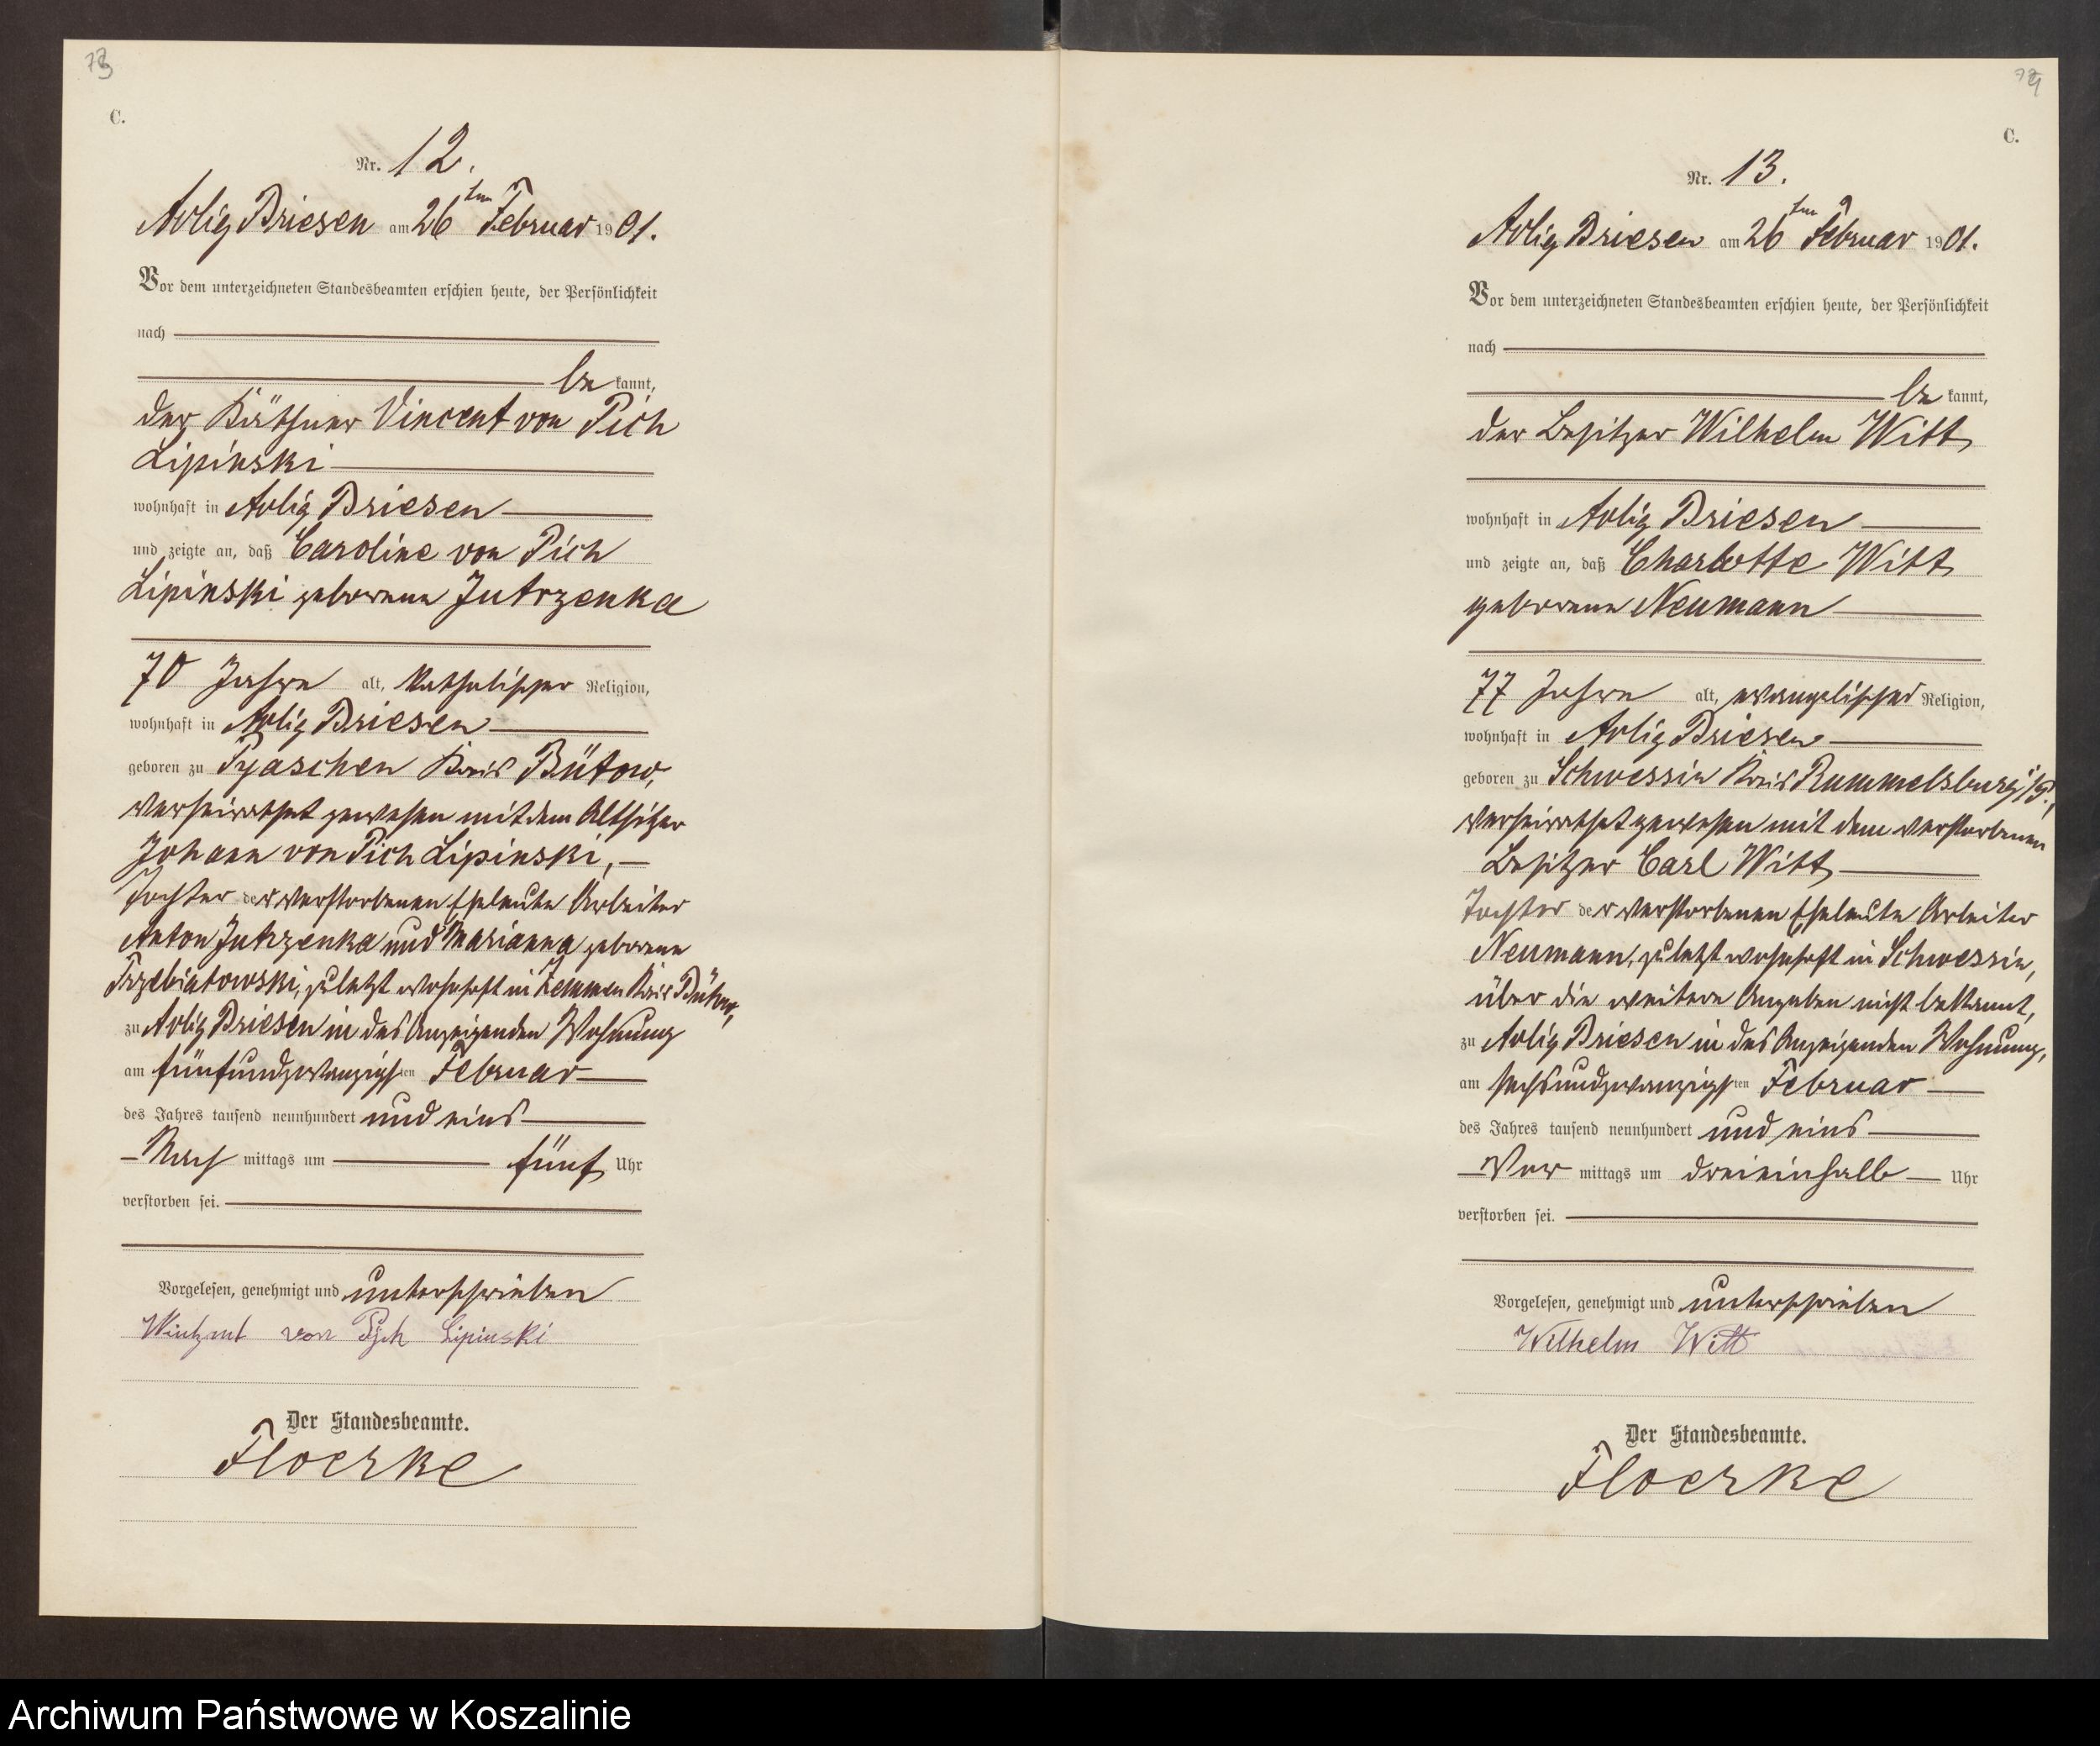 73
C.
Nr. 12.
Adlig Briesen am 26ten Februar 1901.
Vor dem unterzeichneten Standesbeamten erschien heute, der Persönlichkeit
nach
be kannt,
der Käthner Vincent von Pich
Lipinski
wohnhaft in Adlig Briesen
und zeigte an, daß Caroline von Pich
Lipinski geborene Jutrzenka
70 Jahre alt, katholischer Religion,
wohnhaft in Adlig Briesen
geboren zu Pyaschen Kreis Bütow,
verheirathet gewesen mit dem Altsitzer
Johann von Pich Lipinski,
Tochter der verstorbenen Eheleute Arbeiter
Anton Jutrzenka und Marianna geborene
Trzebiatowski, zuletzt wohnhaft in Zemmen Kreis Bütow,
zu Adlig Briesen in des Anzeigenden Wohnung
am fünfundzwanzigsten Februar
des Jahres tausend neunhundert und eins
Nach mittags um fünf Uhr
verstorben sei.
Vorgelesen, genehmigt und unterschrieben
Wintzent von Pych Lipinski
Der Standesbeamte.
Floerke
74
C.
Nr. 13.
Adlig Briesen am 26ten Februar 1901.
Vor dem unterzeichneten Standesbeamten erschien heute, der Persönlichkeit
nach
be kannt,
der Besitzer Wilhelm Witt
wohnhaft in Adlig Briesen
und zeigte an, daß Charlotte Witt
geborene Neumann
77 Jahre alt, evangelischer Religion,
wohnhaft in Adlig Briesen
geboren zu Schwessin Kreis Rummelsburg i/P.,
verheirathet gewesen mit dem verstorbenen
Besitzer Carl Witt
Tochter der verstorbenen Eheleute Arbeiter
Neumann, zuletzt wohnhaft in Schwessin,
über die weitere Angaben nicht bekannt,
zu Adlig Briesen in des Anzeigenden Wohnung,
am sechsundzwanzigsten Februar
des Jahres tausend neunhundert und eins
Vor mittags um dreieinhalb Uhr
verstorben sei.
Vorgelesen, genehmigt und unterschrieben
Wilhelm Witt
Der Standesbeamte.
Floerke
Archiwum Państwowe w Koszalinie